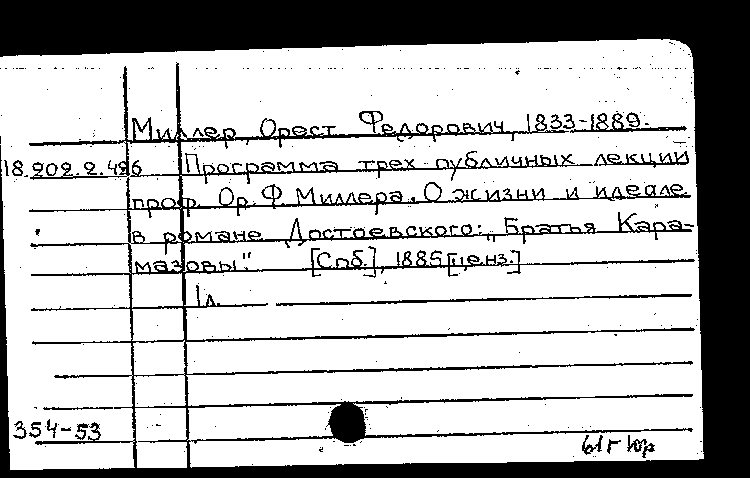 Миллер, Орест Федорович, 1833-1889.
18.202.2.426 Программа трех публичных лекций
проф. Ор. Ф. Миллера. О жизни и идеале
в романе Достоевского: „Братья Кара-
мазовы". [Спб.], 1885 [ценз.]
1 л.
354-53
61г